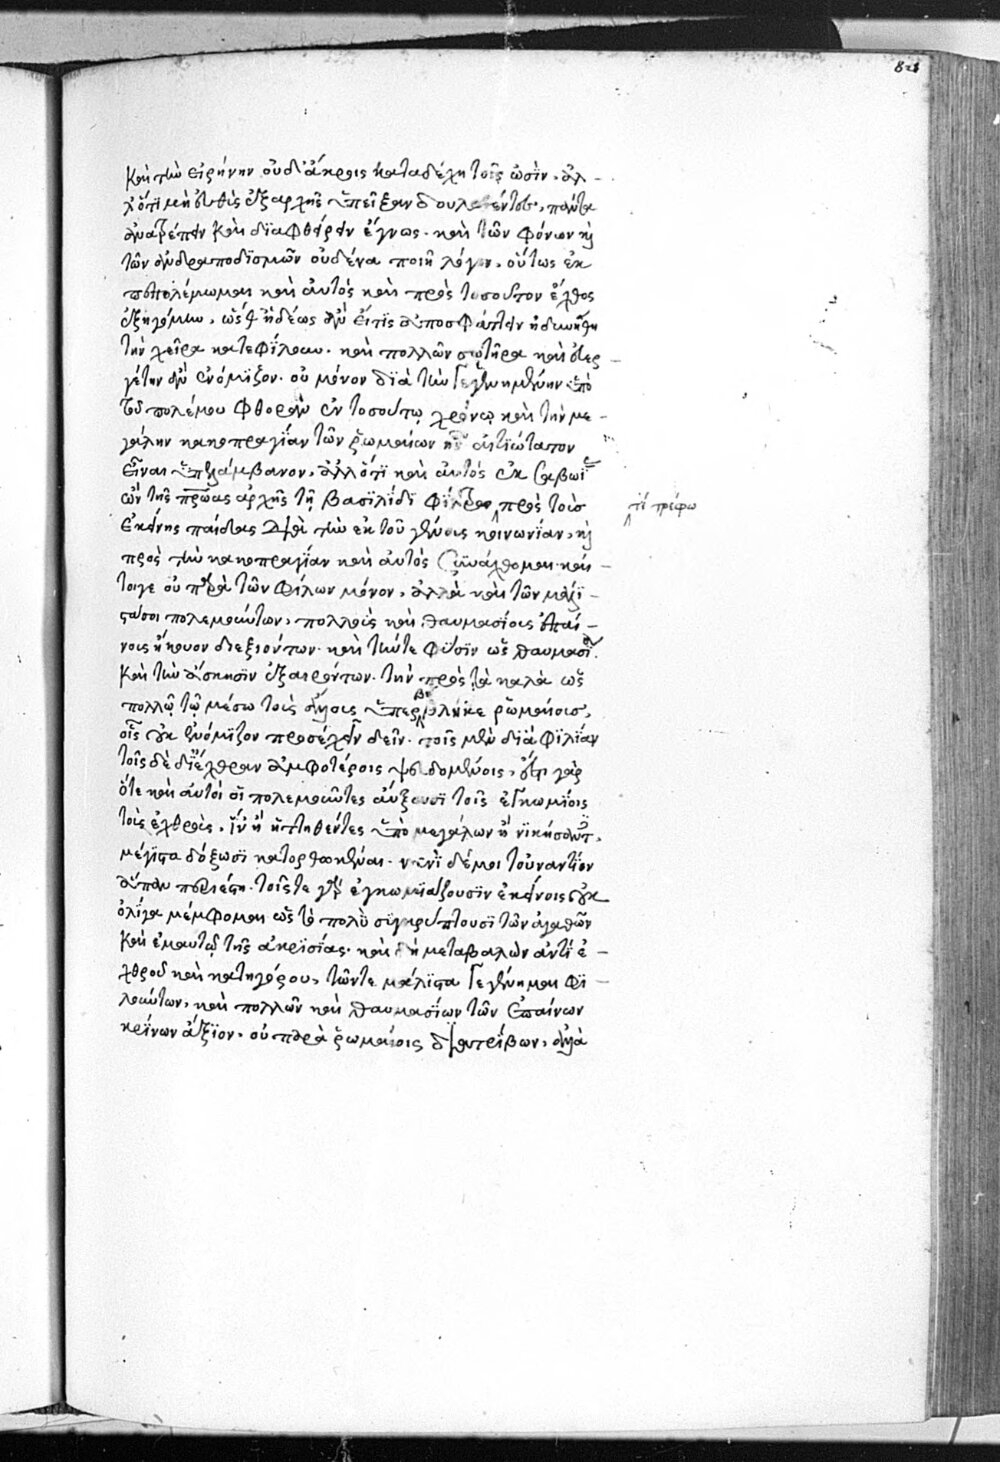 821
καὶ τὴν εἰρήνην οὐδ' ἄκροις καταδέχη τοῖς ὠσὶν. ἀλ –
λ' ὅτι μὴ εὐθὺς ἐξαρχῆς ὑπεῖξαν δουλεύειν, πάντα
ἀνατρέπειν καὶ διαφθείρειν ἔγνως. καὶ τῶν φόνων κὶ
τῶν ἀνδραποδισμῶν οὐδένα ποιῇ λόγον. οὕτως ἐκ
πεπολέμωμαι καὶ αὐτὸς καὶ πρὸς τοσοῦτον ἔχθος
ἐξηγόμην, ὡς ἡδέως ἂν εἴ τις ἀποσφάττειν ἠδυνήθη
τὴν χεῖρα κατεφίλουν. καὶ πολλῶν σωτῆρα καὶ εὐερ –
γέτην ἂν ἐνόμιζον. οὐ μόνον διὰ τὴν γεγενημένην ὑπὸ
τοῦ πολέμου φθορὰν ἐν τοσούτῳ χρόνῳ καὶ τὴν με –
γάλην κακοπραγίαν τῶν ῥωμαίων ἧς αἰτιώτατον
εἶναι ὑπελάμβανον, ἀλλ' ὅτι καὶ αὐτὸς ἐκ
ὢν τῆς πρώτης ἀρχῆς τῇ βασιλίδι φίλτρον πρὸς τοὺς
τι τρέφω
ἐκείνης παῖδας διὰ τὴν ἐκ τοῦ γένους κοινωνίαν, κὶ
πρὸς τὴν κακοπραγίαν καὶ αὐτὸς συνάχθομαι. καί –
τοιγε οὐ παρὰ τῶν φίλων μόνον, ἀλλὰ καὶ τῶν μάλι –
στά σοι πολεμούντων, πολλοῖς καὶ θαυμασίοις ἐπαί –
νοις ἤκουον διεξιόντων. καὶ τήν τε φύσιν ὡς θαυμασίαν
καὶ τὴν ἄσκησιν ἐξαιρόντων. τὴν πρὸς τὰ καλὰ ὡς
πολλῷ τῷ μέσῳ τοὺς ἄλλους ὑπερβέβληκε ῥωμαίοις,
οἷς οὐκ ἐνόμιζον προσέχειν δεῖν. τοῖς μὲν διὰ φιλίαν
τοῖς δὲ δι' ἔχθραν ἀμφοτέροις ψευδομένοις, ἔστι γὰρ
ὅτε καὶ αὐτοὶ οἱ πολεμοῦντες αὔξουσι τοῖς ἐγκωμίοις
τοὺς ἐχθροὺς, ἵν' ἢ ἡττηθέντες ὑπὸ μεγάλων ἢ νικήσαντες,
μέγιστα δόξωσι κατορθωκέναι. νυνὶ δέ μοι τοὐναντίον
ἅπαν περιέστη. τοῖς τε γὰρ ἐγκωμιάζουσιν ἐκείνοις οὐκ
ὀλίγα μέμφομαι ὡς τὸ πολὺ συγκρύπτουσι τῶν ἀγαθῶν
καὶ ἐμαυτῷ τῆς ἀκρισίας. καὶ δὴ μεταβαλὼν ἀντὶ ἐ –
χθροῦ καὶ κατηγόρου, τῶν τε μάλιστα γεγένημαι φι –
λούντων, καὶ πολλῶν καὶ θαυμασίων τῶν ἐπαίνων
κρίνων ἄξιον. οὐ παρὰ ῥωμαίοις διατρίβων, ἀλλὰ